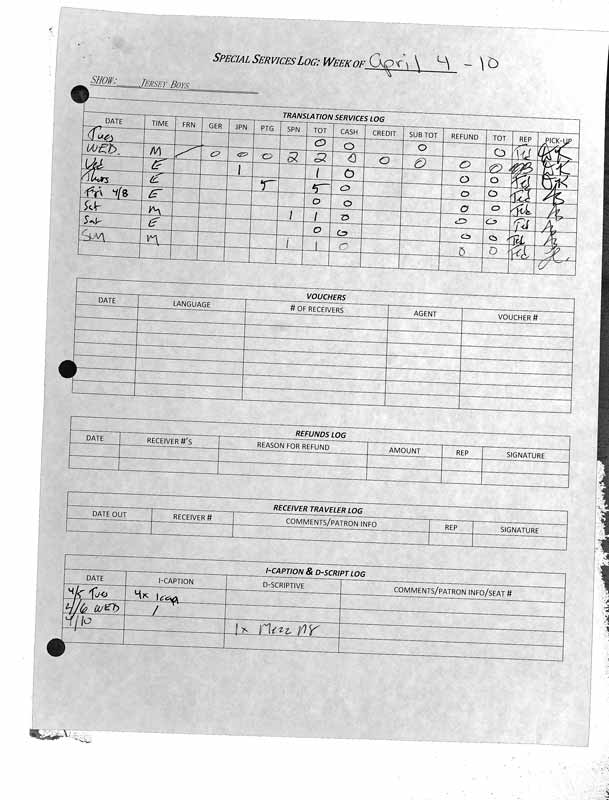 SPECIAL SERVICES LOG: WEEK OF April 4 - 10
SHOW: JERSEY BOYS
TRANSLATION SERVICES LOG
DATE TIME FRN GER JPN PTG SPN TOT CASH CREDIT SUB TOT REFUND TOT REP PICK-UP
Tues 0 0 0 0 Ted
WED. M 0 0 0 2 2 0 0 0 0 0
Wed E 1 1 0 0 0 Ted
Thurs E 5 5 0 0 0 Ted
Fri 4/8 E 0 0 0 0 Ted
Sat M 1 1 0 0 0 Ted
Sat E 0 0 0 0 Ted
Sun M 1 1 0 0 0 Ted
VOUCHERS
DATE LANGUAGE # OF RECEIVERS AGENT VOUCHER #
REFUNDS LOG
DATE RECEIVER #'S REASON FOR REFUND AMOUNT REP SIGNATURE
RECEIVER TRAVELER LOG
DATE OUT RECEIVER # COMMENTS/PATRON INFO REP SIGNATURE
I-CAPTION & D-SCRIPT LOG
DATE I-CAPTION D-SCRIPTIVE COMMENTS/PATRON INFO/SEAT #
4/5 TUE 4x Icap
4/6 WED 1
4/10 1x Mezz